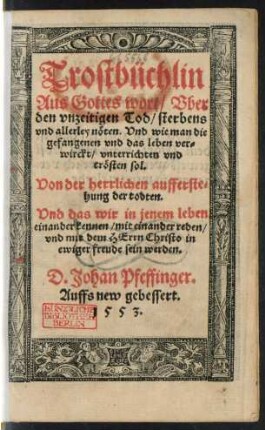 Trostbüchlin
Aus Gottes wort/ Vber
den vnzeitigen Tod/ sterbens
vnd allerley nöten. Vnd wie man die
gefangenen vnd das leben ver-
wirckt/ vnterrichten vnd
trösten sol.
Von der herrlichen aufferste-
hung der todten.
Vnd das wir in jenem leben
einander kennen/ mit einander reden/
vnd mit dem HErrn Christo in
ewiger freude sein werden.
D. Johan Pfeffinger.
Auffs new gebessert.
1553.
KÖNIGLICHE
BIBLIOTHEK
BERLIN